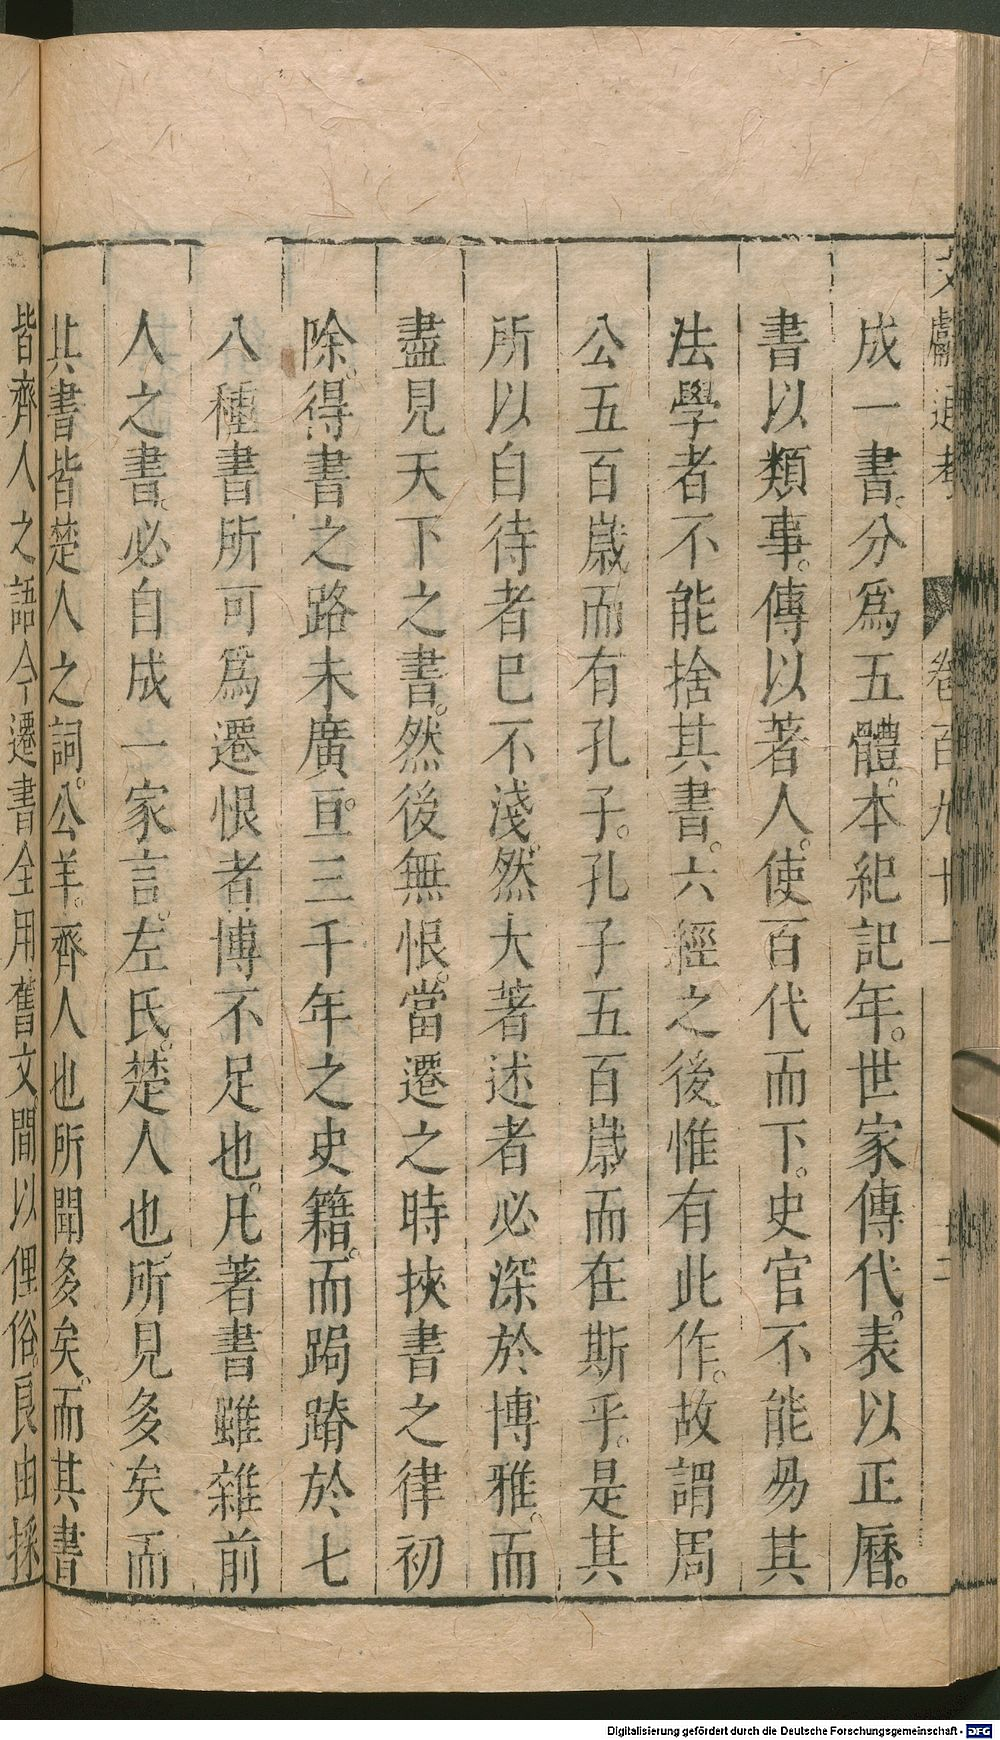 文獻通考 卷百九十一
成一書。分爲五體。本紀記年。世家傳代。表以正曆。
書以類事。傳以著人。使百代而下。史官不能易其
法學者不能捨其書。六經之後惟有此作。故謂周
公五百歲而有孔子。孔子五百歲而在斯乎。是其
所以自待者已不淺。然大著述者必深於博雅。而
盡見天下之書。然後無恨。當遷之時挾書之律初
除。得書之路未廣。亘三千年之史籍。而跼蹐於七
八種書。所可爲遷恨者博不足也。凡著書雖雜前
人之書。必自成一家言。左氏。楚人也所見多矣而
其書皆楚人之詞。公羊。齊人也所聞多矣。而其書
皆齊人之語今遷書全用舊文間以俚俗。良由採
Digitalisierung gefördert durch die Deutsche Forschungsgemeinschaft - DFG